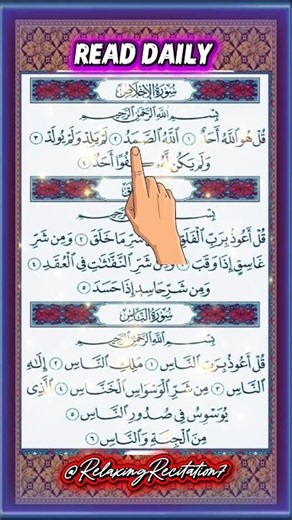 READ DAILY
سُورَةُ الإِخْلَاصِ
بِسْمِ اللَّهِ الرَّحْمَٰنِ الرَّحِيمِ
قُلْ هُوَ اللَّهُ أَحَدٌ ١ اللَّهُ الصَّمَدُ ٢ لَمْ يَلِدْ وَلَمْ يُولَدْ ٣
وَلَمْ يَكُن كُفُوًا أَحَدٌ ٤
بِسْمِ
قُلْ أَعُوذُ بِرَبِّ الْفَلَقِ شَرِّ مَا خَلَقَ ٢ وَمِن شَرِّ
غَاسِقٍ إِذَا وَقَبَ ٣ شَرِّ النَّفَّاثَاتِ فِي الْعُقَدِ ٤
وَمِن شَرِّ حَاسِدٍ إِذَا حَسَدَ ٥
سُورَةُ النَّاسِ
بِسْمِ اللَّهِ الرَّحْمَٰنِ الرَّحِيمِ
قُلْ أَعُوذُ بِرَبِّ النَّاسِ ١ مَلِكِ النَّاسِ ٢ إِلَٰهِ
النَّاسِ ٣ مِن شَرِّ الْوَسْوَاسِ الْخَنَّاسِ ٤ الَّذِي
يُوَسْوِسُ فِي صُدُورِ النَّاسِ ٥
مِنَ الْجِنَّةِ وَالنَّاسِ ٦
@RelaxingRecitation7